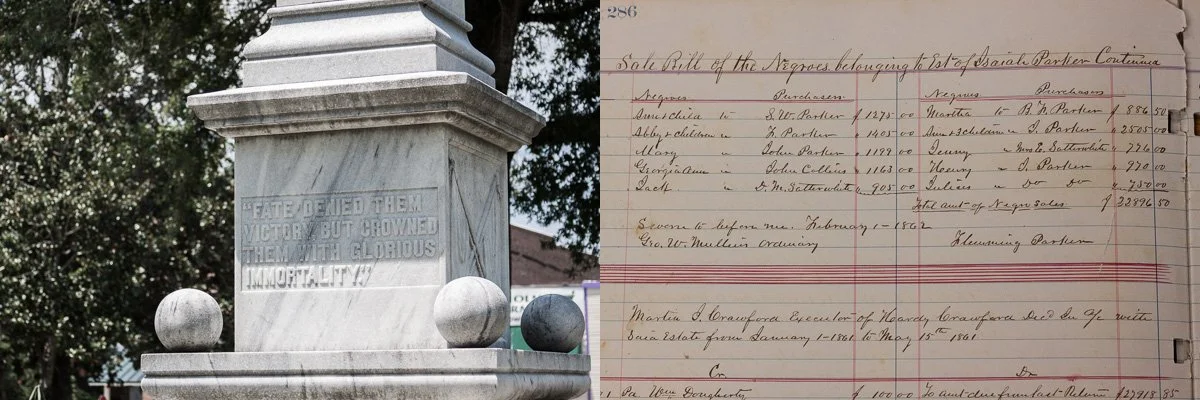 "FATE DENIED THEM
VICTORY BUT CROWNED
THEM WITH GLORIOUS
IMMORTALITY."
286
Sale Bill of the Negroes belonging to Est of Isaiah Parker Continued
Negroes Purchasers Negroes Purchasers
Sue & child to S. W. Parker $ 1275 00 Martha to B. F. Parker $ 886 50
Abby & children " F. Parker " 1405 00 Sue & 3 children " I. Parker " 2505 00
Mary " John Parker " 1199 00 Jenny " Mrs E. Satterwhite " 776 00
Georgia Ann " John Collins " 1163 00 Henry " I. Parker " 970 00
Jack " D. M. Satterwhite " 905 00 Julius " Do Do " 750 00
Total amt of Negro Sales $ 22896 50
Sworn to before me. February 1 - 1862
Geo. W. Mullins Ordinary Flemming Parker
Martin J. Crawford Executor of Hardy Crawford Decd In a/c with
Said Estate from January 1 - 1861 to May 15th 1861
Cr. Dr.
Pa Wm Dougherty $ 100 00 To amt due from last Return $27918 85